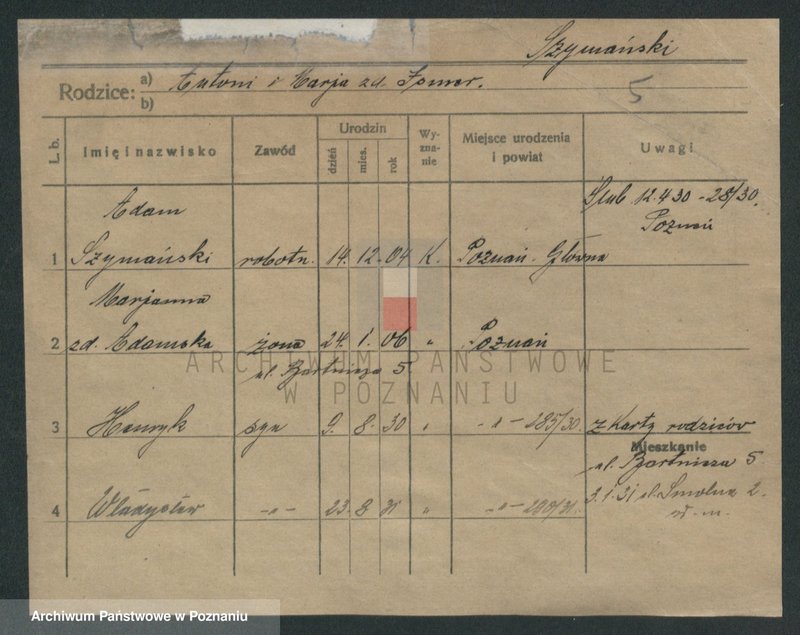 Szymański
Rodzice: a) b) Antoni i Marja zd. Ismer.
5
L. b. Imię i nazwisko Zawód Urodzin dzień mies. rok Wyznanie Miejsce urodzenia i powiat Uwagi
Adam Ślub 12.4.30 - 28/30.
Poznań
1 Szymański robotn. 14. 12. 04 K. Poznań - Główna
Marjanna
2 zd. Adamska żona 24. 1. 06 " Poznań
ul. Bartnicza 5
ARCHIWUM PAŃSTWOWE
W POZNANIU
3 Henryk syn 9. 8. 30 " - " - 285/30. z Karty rodziców
Mieszkanie
ul. Bartnicza 5
3.1.31 ul. Smolna 2.
4 Władysław - " - 23. 31 " - " -
Archiwum Państwowe w Poznaniu